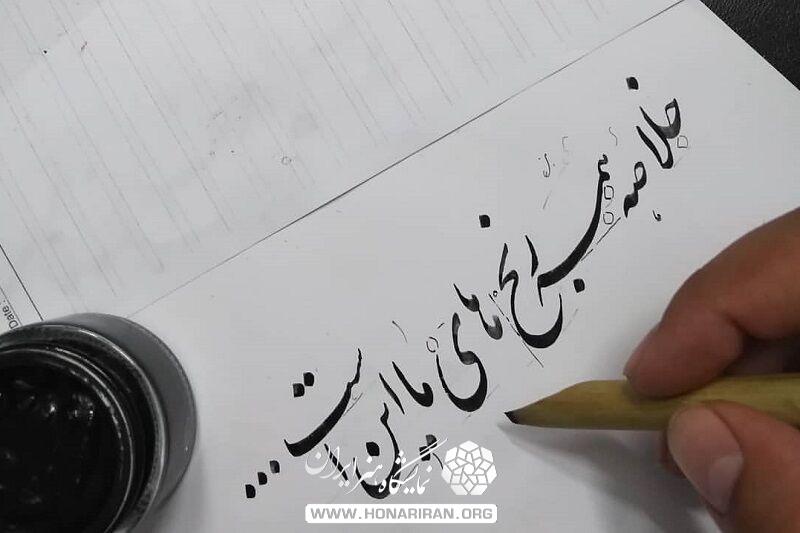 خلاصه همه رنج های ما این است ...
Date :
نمایشگاه هنر ایران
WWW.HONARIRAN.ORG